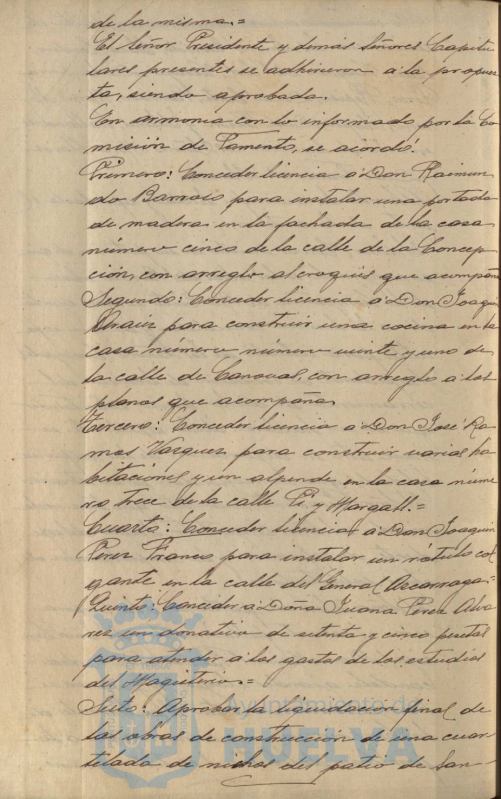 de la misma.=
El Señor Presidente y demás Señores Capitu
lares presentes se adhirieron a la propues
ta, siendo aprobada.
En armonia con lo informado por la Co
misión de Fomento, se acordó:
Primero: Conceder licencia a Don Raimun
do Barroso para instalar una portada
de madera en la fachada de la casa
número cinco de la calle de la Concep
ción, con arreglo al croquis que acompaña
Segundo: Conceder licencia a Don Joaquin
para construir una cocina en la
casa número número veinte y uno de
la calle de Canovas, con arreglo a los
planos que acompaña.
Tercero: Conceder licencia a Don José Ra
mos Vazquez para construir varias ha
bitaciones y un alpende en la casa núme
ro trece de la calle Pi y Margall.=
Cuarto: Conceder licencia a Don Joaquin
Perez Franco para instalar un rótulo col
gante en la calle del General Azcarraga=
Quinto: Conceder a Doña Juana Perez Alva
rez un donativo de setenta y cinco pesetas
para atender a los gastos de los estudios
del Magisterio.=
Sexto: Aprobar la liquidacion final de
las obras de construcción de una cuar
telada de nichos del patio de San-
Ayuntamiento de
HUELVA